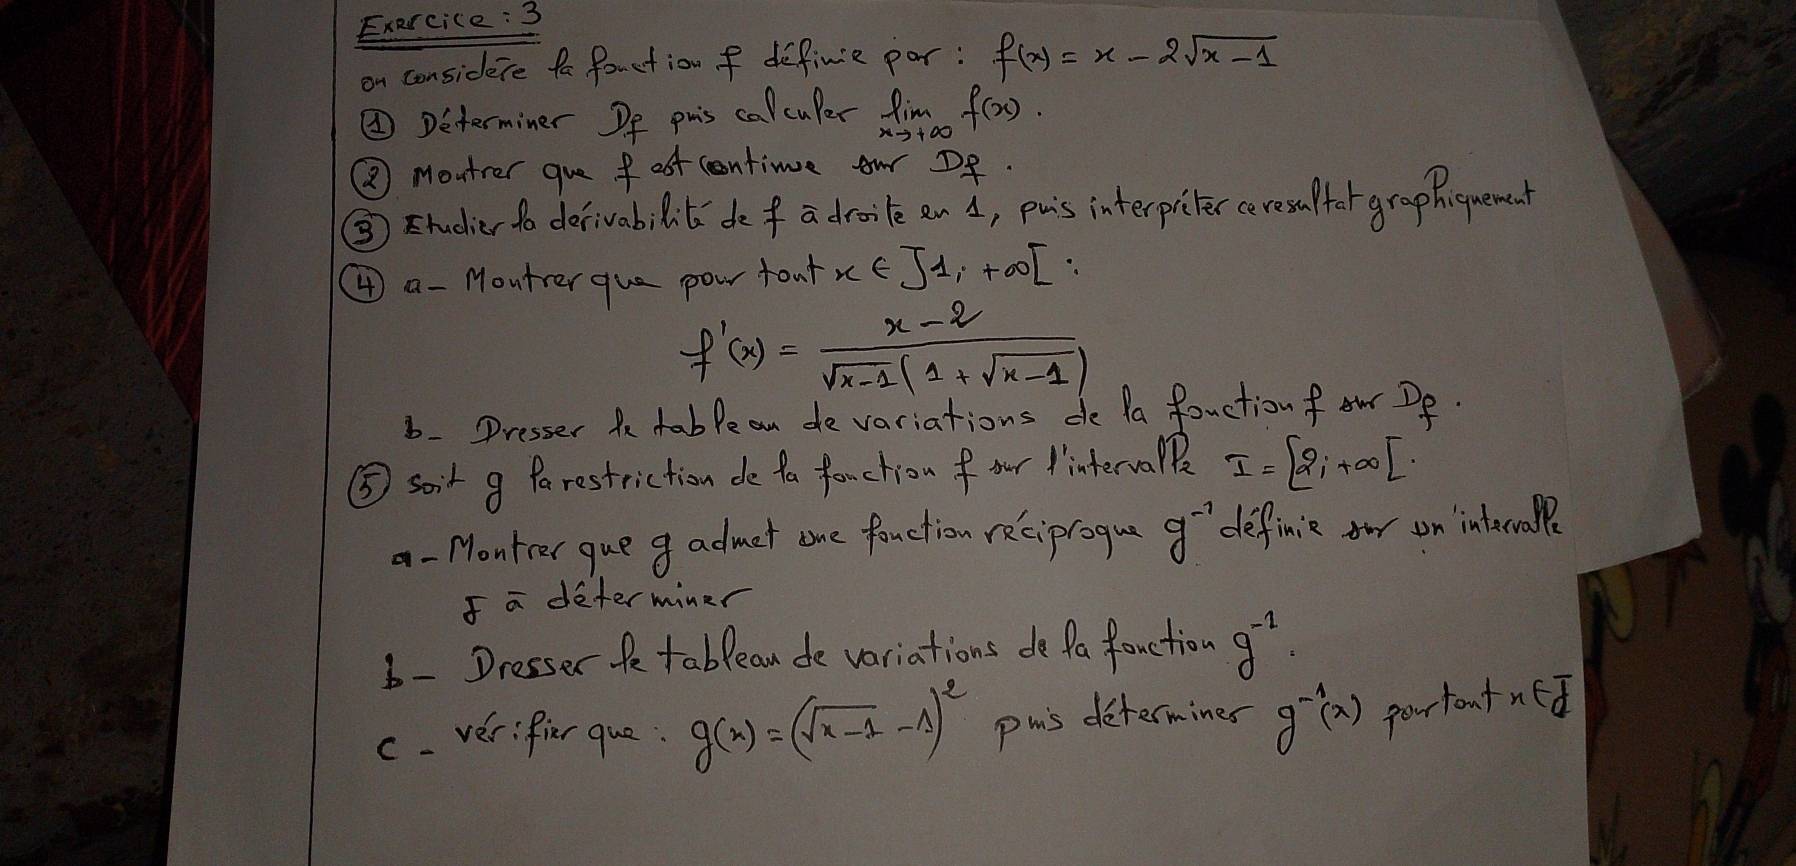 Exercice : 3
on considère la fonction f définie par : f(x) = x - 2√(x-1)
① Déterminer Df puis calculer lim x→+∞ f(x).
② Montrer que f est continue sur Df.
③ Etudier la dérivabilité de f à droite en 1, puis interpréter ce resultat graphiquement
④ a- Montrer que pour tout x ∈ ]1; +∞[ :
f'(x) = (x - 2) / (√(x-1) (1 + √(x-1)))
b- Dresser le tableau de variations de la fonction f sur Df.
⑤ soit g la restriction de la fonction f sur l'intervalle I = [2; +∞[.
a- Montrer que g admet une fonction réciproque g⁻¹ définie sur un intervalle
J à déterminer
b- Dresser le tableau de variations de la fonction g⁻¹.
c- vérifier que : g(x) = (√(x-1) - 1)² puis déterminer g⁻¹(x) pour tout x ∈ J